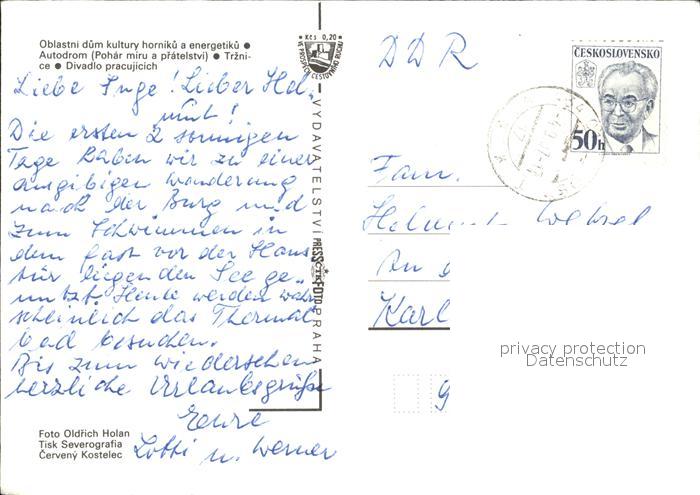 Oblastní dům kultury horníků a energetiků ●
Autodrom (Pohár míru a přátelství) ● Tržni-
ce ● Divadlo pracujících
Liebe Inge! Lieber Hel-
mut!
Die ersten 2 sonnigen
Tage haben wir zu einer
ausgibigen Wanderung
nach der Burg und
zum Schwimmen in
dem fast vor der Haus
tür liegenden See ge-
nutzt. Heute werden wahr
scheinlich das Thermal
bad besuchen.
Bis zum Wiedersehen
herzliche Urlaubsgrüße
Eure
Lotti u. Werner
Foto Oldřich Holan
Tisk Severografia
Červený Kostelec
Kčs 0,20
VE PROSPĚCH CESTOVNÍHO RUCHU
VYDAVATELSTVÍ PRESSFOTO PRAHA
DDR
ČESKOSLOVENSKO
50h
Fam.
Helmut
An d
Karl
9
privacy protection
Datenschutz